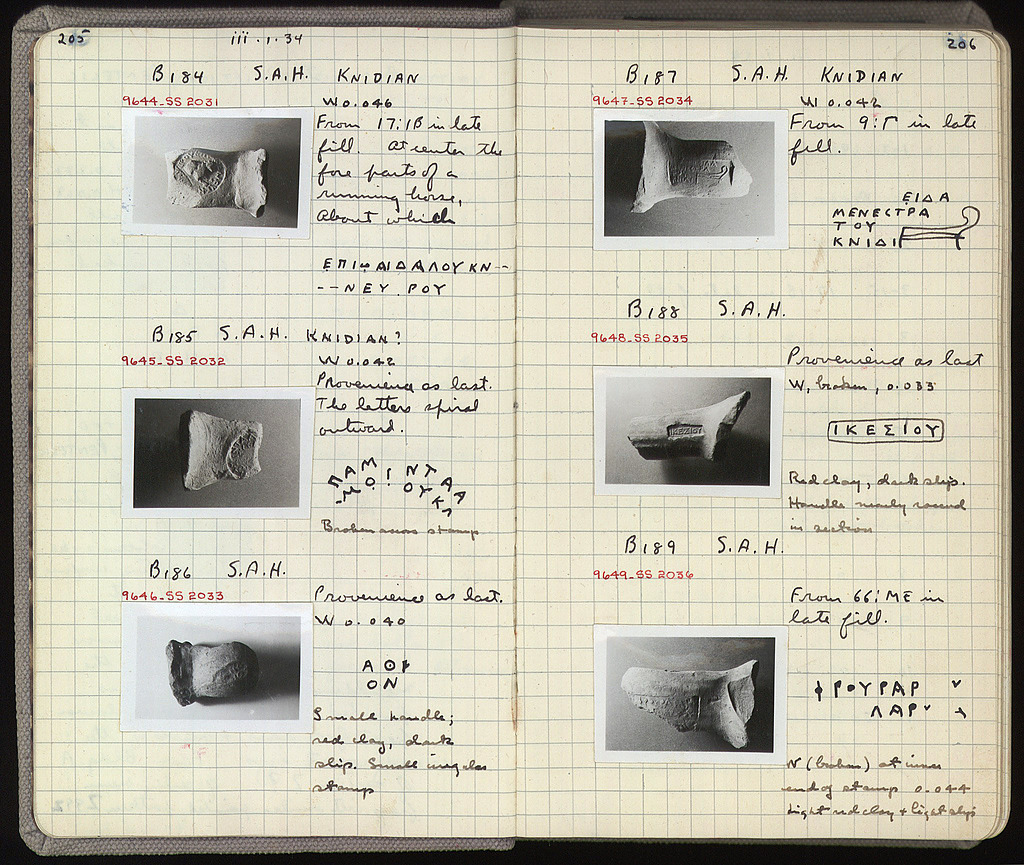 205
iii.1.34
B184 S.A.H. KNIDIAN
9644-SS 2031
W 0.046
From 17:ΙΒ in late
fill. At center the
fore parts of a
running horse,
About which
ΕΠΙΦΑΙΔΑΛΟΥΚΝ--
--ΝΕΥ.ΡΟΥ
B185 S.A.H. KNIDIAN?
9645-SS 2032
W 0.042
Provenience as last.
The letters spiral
outward.
Broken across stamp
B186 S.A.H.
9646-SS 2033
Provenience as last.
W 0.040
ΟΝ
Small handle;
red clay, dark
slip. Small irregular
stamp
206
B187 S.A.H. KNIDIAN
9647-SS 2034
W 0.042
From 9:Γ in late
fill.
ΕΙΔΑ
ΜΕΝΕΣΤΡΑ
ΤΟΥ
ΚΝΙΔΙ
B188 S.A.H.
9648-SS 2035
Provenience as last
W, broken, 0.033
ΙΚΕΣΙΟΥ
Red clay, dark slip.
Handle nearly round
in section
B189 S.A.H.
9649-SS 2036
From 66:ΜΕ in
late fill.
ΦΡΟΥΡΑΡ
ΛΑΡ
W (broken) at inner
end of stamp 0.044
Light red clay + light slip